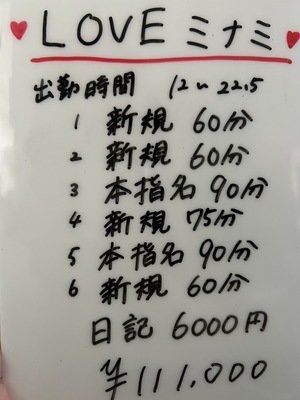 LOVEミナミ
出勤時間 12〜22.5
1 新規 60分
2 新規 60分
3 本指名 90分
4 新規 75分
5 本指名 90分
6 新規 60分
日記 6000円
¥111,000